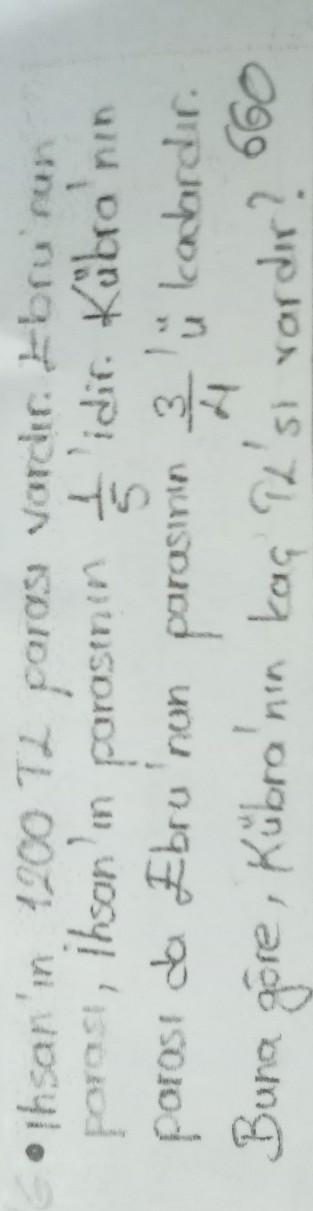 6 • İhsan'ın 1200 TL parası vardır. Ebru'nun
parası, İhsan'ın parasının 1/5'idir. Kübra'nın
parası da Ebru'nun parasının 3/4'ü kadardır.
Buna göre, Kübra'nın kaç TL'si vardır? 660